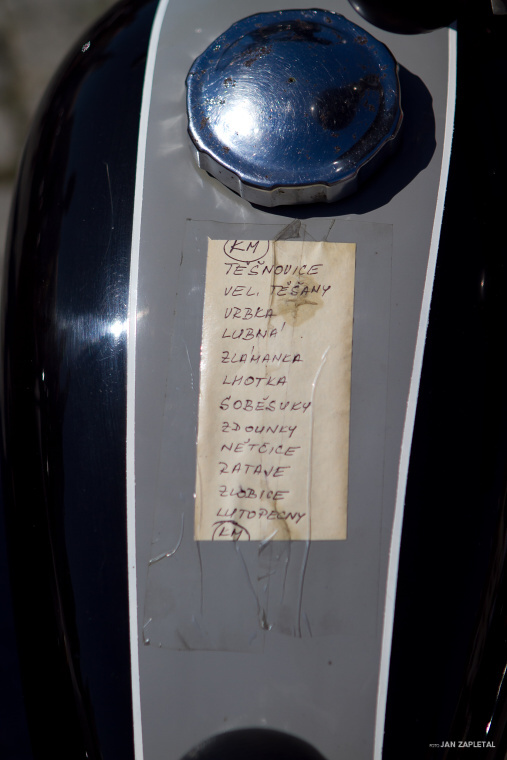 KM
TĚŠNOVICE
VEL. TĚŠANY
VRBKA
LUBNÁ
ZLÁMANKA
LHOTKA
SOBĚSUKY
ZDOUNKY
NĚTČICE
RATAVE
ZLOBICE
LUTOPECNY
KM
FOTO JAN ZAPLETAL